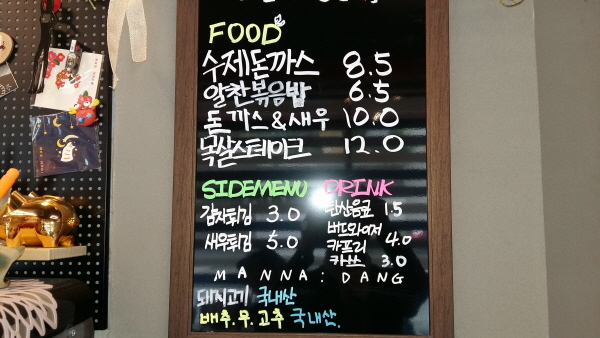 FOOD
수제돈까스 8.5
알찬볶음밥 6.5
돈까스&새우 10.0
목살스테이크 12.0
SIDEMENU DRINK
감자튀김 3.0 탄산음료 1.5
새우튀김 5.0 버드와이저
카프리 4.0
카쓰 3.0
MANNA: DANG
돼지고기 국내산
배추.무.고추 국내산.